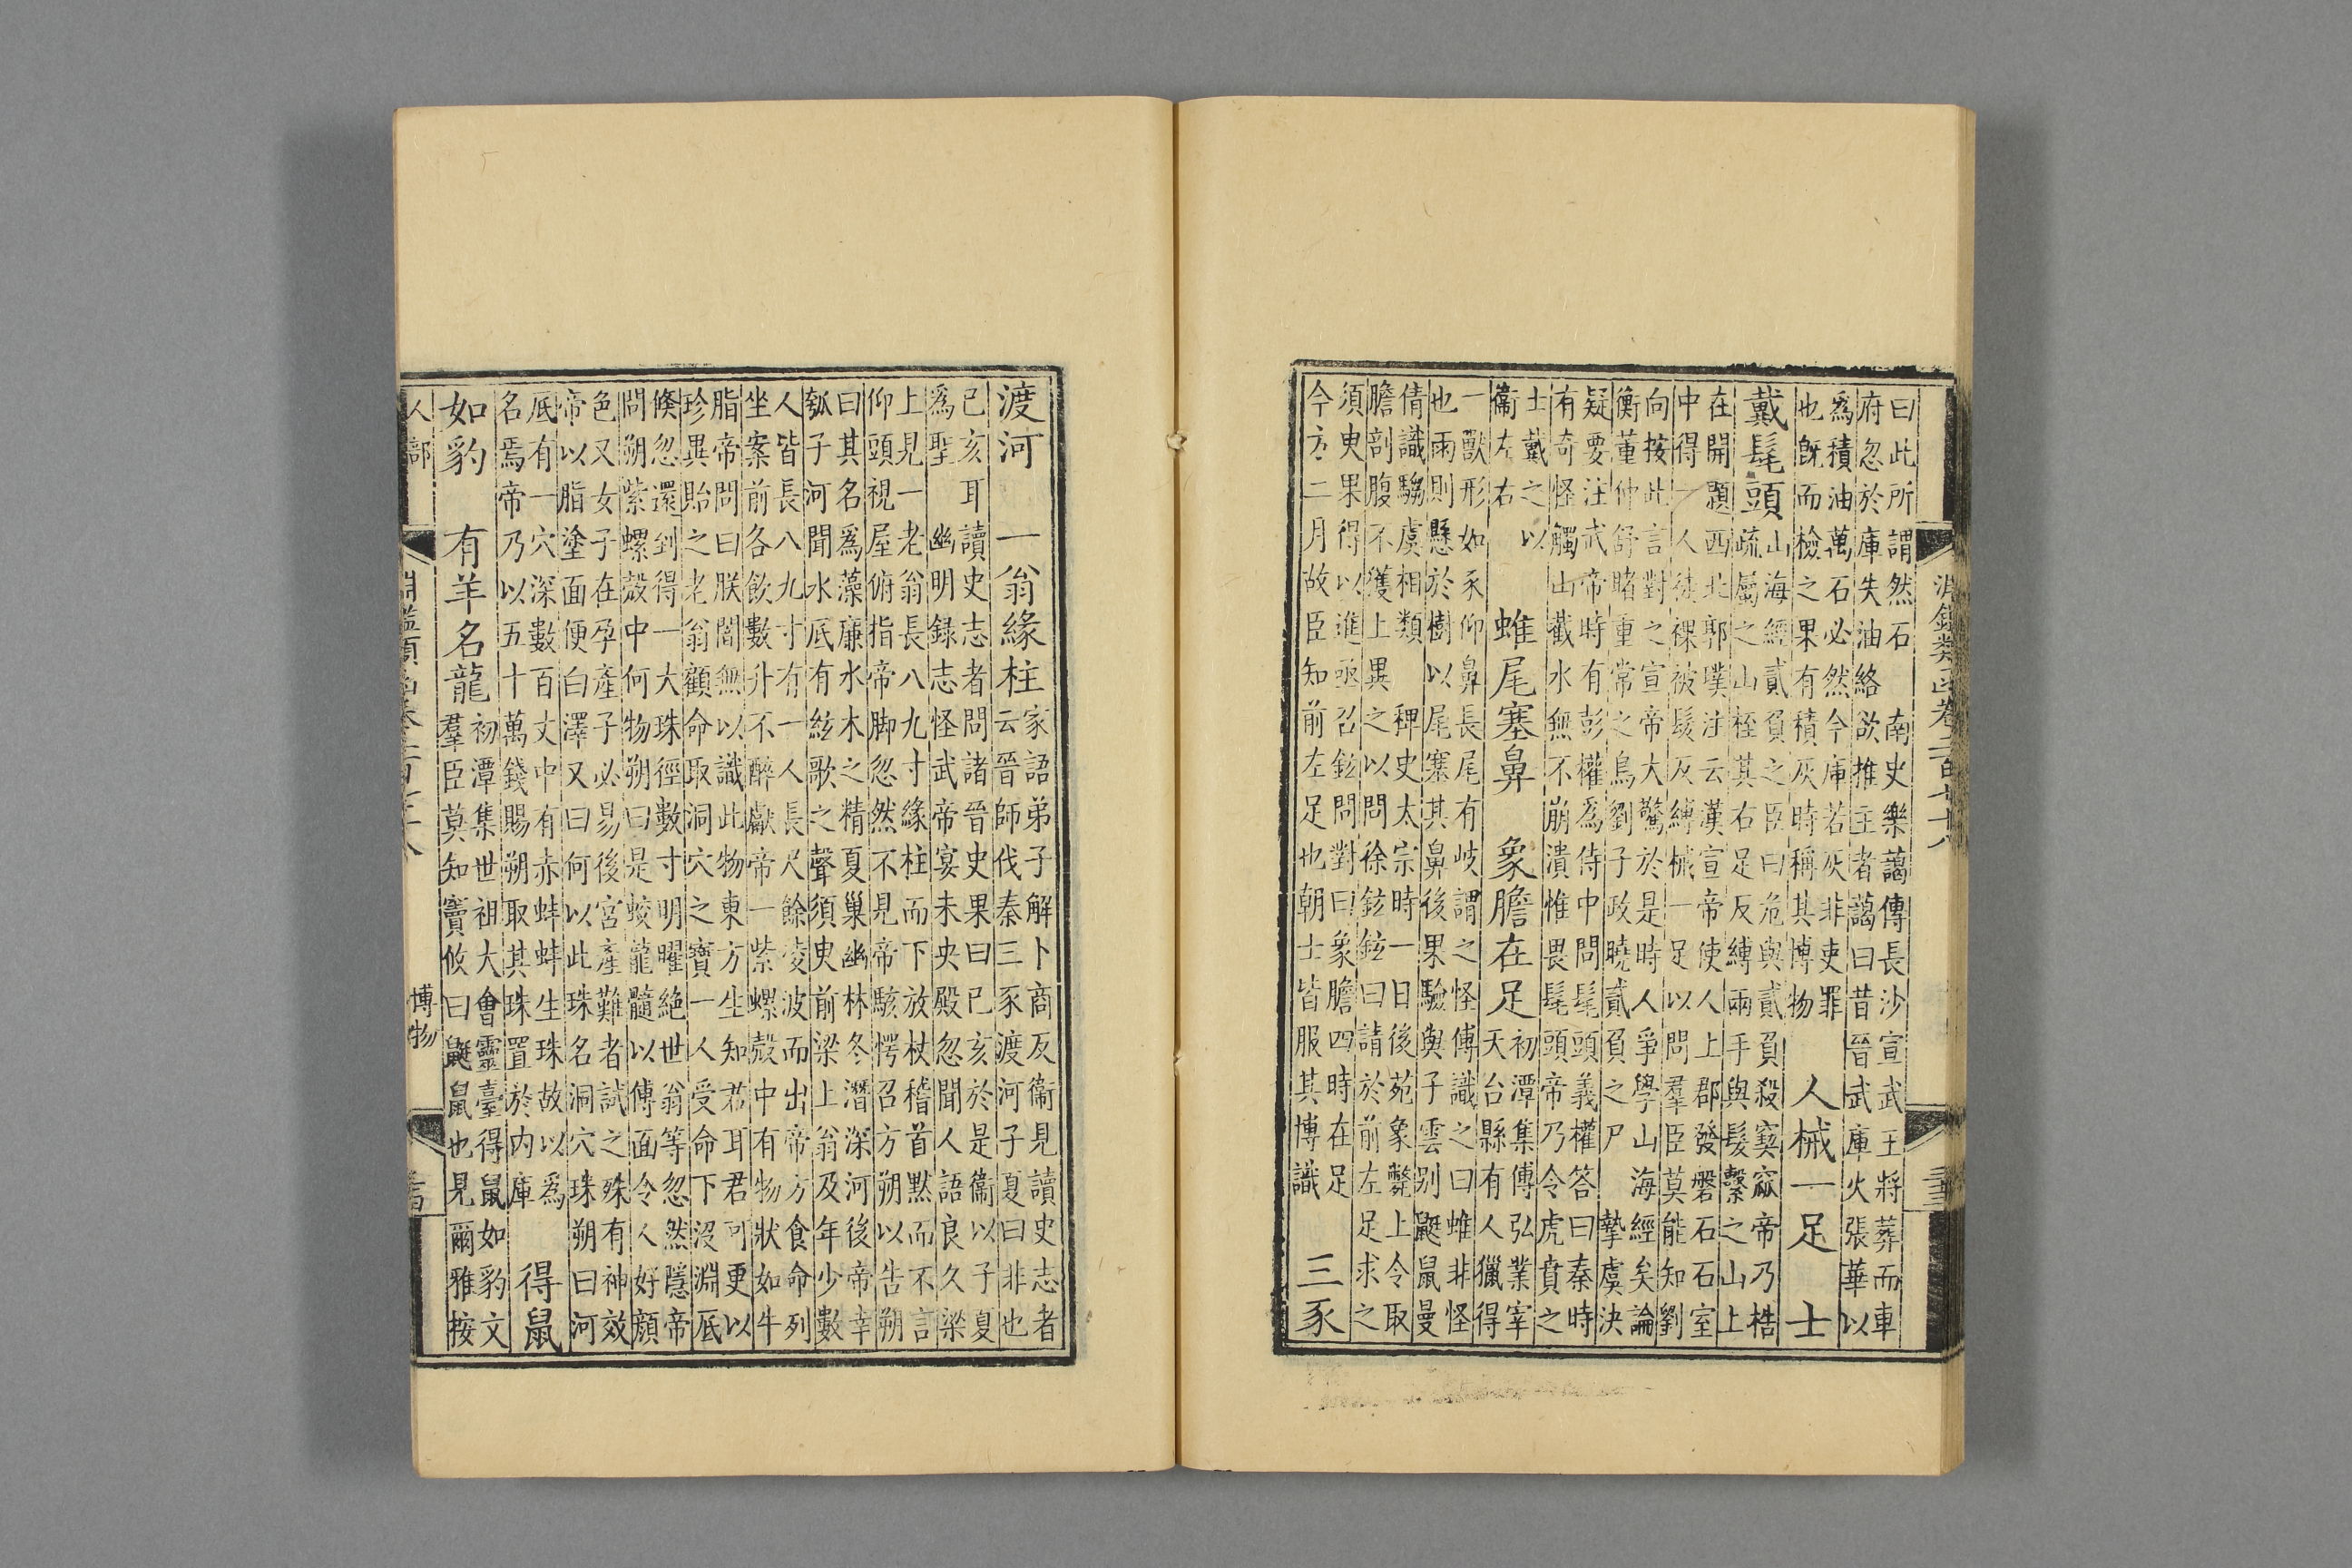 淵鑑類函卷二百七十八
曰此所謂然石 南史樂藹傳長沙宣武王將葬而車
府忽於庫失油絡欲推主者藹曰昔晉武庫火張華以
為積油萬石必然今庫若灰非吏罪
也旣而檢之果有積灰時稱其博物
人械一足 士
戴髦頭
山海經貳負之臣曰危與貳負殺窫窳帝乃梏
疏屬之山桎其右足反縛兩手與髮繫之山上
在開題西北郭璞注云漢宣帝使人上郡發磐石石室
中得一人徒裸被髮反縛械一足以問羣臣莫能知劉
向按此言對之宣帝大驚於是時人爭學山海經矣論
衡董仲舒睹重常之鳥劉子政曉貳負之尸 摯虞決
疑要注武帝時有彭權為侍中問髦頭義權答曰秦時
有奇怪觸山截水無不崩潰惟畏髦頭帝乃令虎賁之
士戴之以
衞左右
蜼尾塞鼻 象膽在足
初潭集傅弘業宰
天台縣有人獵得
一獸形如豕仰鼻長尾有岐謂之怪傅識之曰蜼非怪
也雨則懸於樹以尾塞其鼻後果驗與子雲别鼮鼠曼
倩識騶虞相類 稗史太宗時一日後苑象斃上令取
膽剖腹不獲上異之以問徐鉉鉉曰請於前左足求之
須臾果得以進亟召鉉問對曰象膽四時在足
今方二月故臣知前左足也朝士皆服其博識
三豕
渡河 一翁緣柱
家語弟子解卜商反衞見讀史志者
云晉師伐秦三豕渡河子夏曰非也
已亥耳讀史志者問諸晉史果曰已亥於是衞以子夏
為聖 幽明録志怪武帝宴未央殿忽聞人語良久梁
上見一老翁長八九寸緣柱而下放杖稽首黙而不言
仰頭視屋俯指帝脚忽然不見帝駭愕召方朔以告朔
曰其名為藻廉水木之精夏巢幽林冬潛深河後帝幸
瓠子河聞水底有絃歌之聲須臾前梁上翁及年少數
人皆長八九寸有一人長尺餘凌波而出帝方食命列
坐案前各飲數升不醉獻帝一紫螺殻中有物狀如牛
脂帝問曰朕闇無以識此物東方生知君耳君可更以
珍異貽之老翁顧命取洞穴之寶一人受命下沒淵底
倐忽還到得一大珠徑數寸明曜絶世翁等忽然隱帝
問朔紫螺殻中何物朔曰是蛟龍髓以傅面令人好顏
色又女子在孕產子必易後宮產難者試之殊有神效
帝以脂塗面便白澤又曰何以此珠名洞穴珠朔曰河
底有一穴深數百丈中有赤蚌蚌生珠故以為
名焉帝乃以五十萬錢賜朔取其珠置於内庫
得鼠
如豹 有羊名龍
初潭集世祖大會靈臺得鼠如豹文
羣臣莫知竇攸曰鼮鼠也見爾雅按
人部
淵鑑類函卷二百七十八
博物